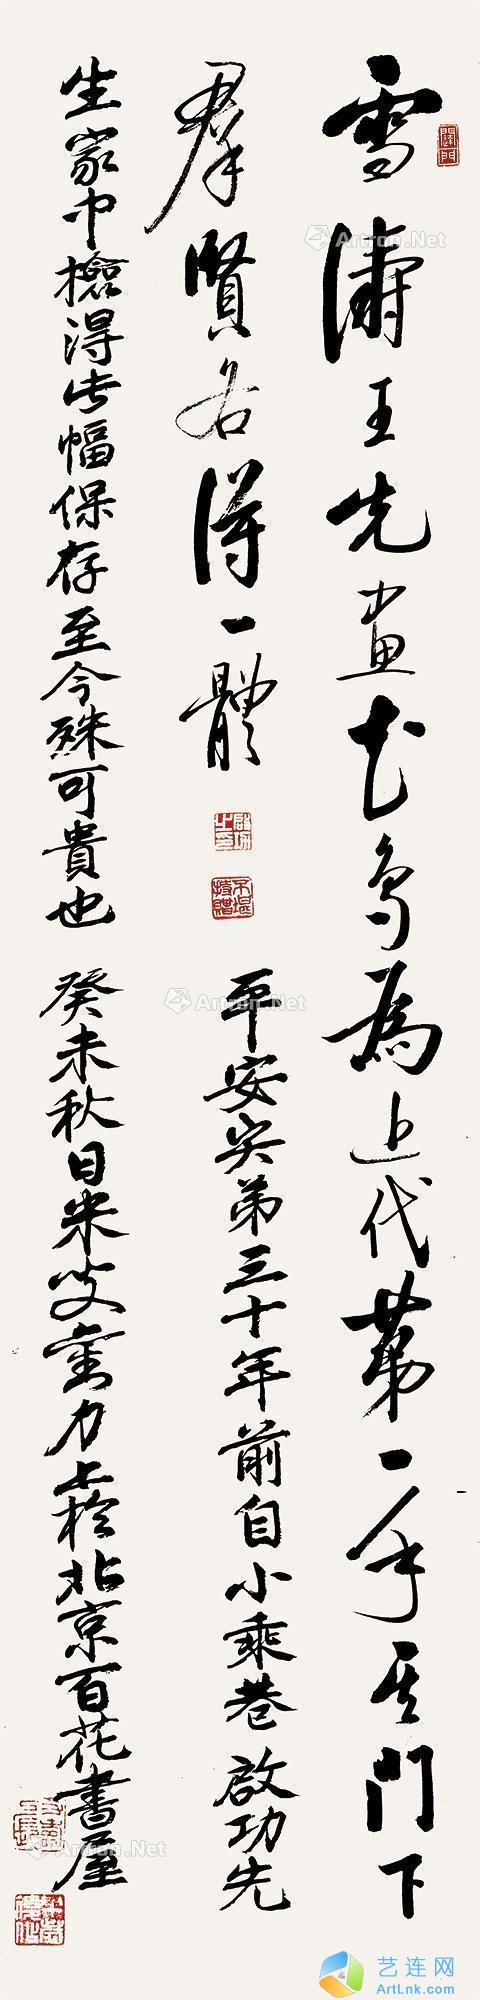 雪濤王先畫花鳥為近代第一手其門下
羣賢各得一體
啟功之印
不堪持贈
平安 弟三十年前自小乘巷啟功先
生家中撿得此幅保存至今殊可貴也
癸未秋日米叟 於北京百花書屋
Artron.Net
Artron.Net
Artron.Net
艺连网
ArtLnk.com